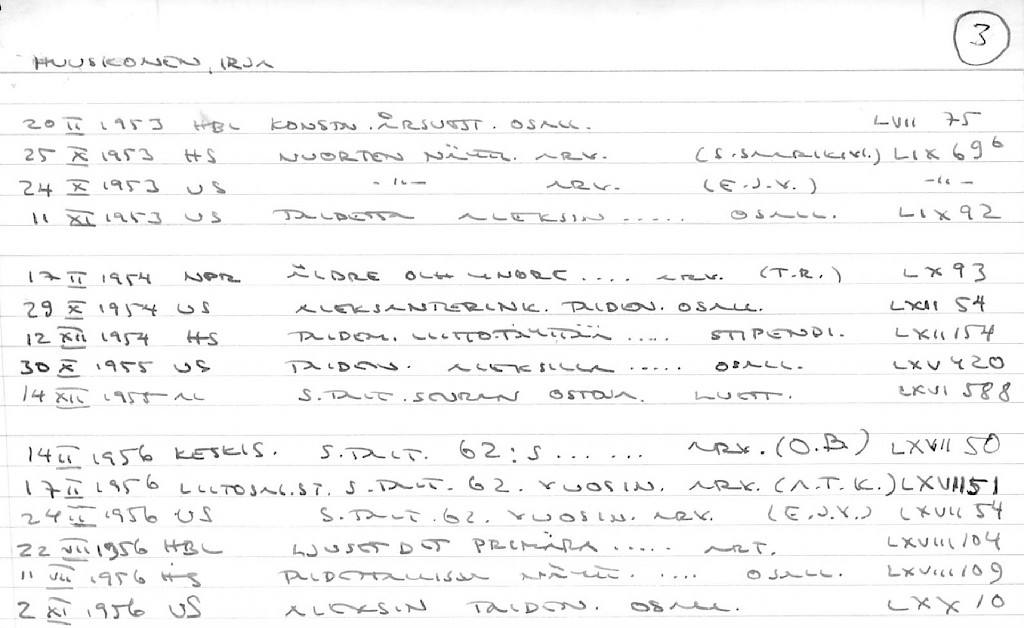 3
HUUSKONEN, IRJA
20 II 1953 HBL KONSTN. ÅRSUTST. OSALL. LVII 75
25 X 1953 HS NUORTEN NÄYTT. ARV. (S. SAARIKIVI.) LIX 69⁶
24 X 1953 US -"- ARV. (E.J.V.) -"-
11 XI 1953 US TAIDETTA ALEKSIN ..... OSALL. LIX 92
17 II 1954 NPR ÄLDRE OCH YNGRE .... ARV. (T.R.) LX 93
29 X 1954 US ALEKSANTERINK. TAIDEN. OSALL. LXII 54
12 XII 1954 HS TAIDEM. ..... STIPENDI. LXII 154
30 X 1955 US TAIDEN. ALEKSILLA ..... OSALL. LXV 420
14 XII 1955 AL S. TAIT. SEURAN OSTOJA. LUETT. LXVI 588
14 II 1956 KESKIS. S. TAIT. 62:S ...... ARV. (O.B.) LXVII 50
17 II 1956 S. TAIT. 62. VUOSIN. ARV. (A.T.K.) LXVII 51
24 II 1956 US S. TAIT. 62. VUOSIN. ARV. (E.J.V.) LXVII 54
22 VII 1956 HBL LJUSET DET PRIMÄRA ..... ART. LXVIII 104
11 VII 1956 HS TAIDETTALLISSA NÄYTT. .... OSALL. LXVIII 109
2 XI 1956 US ALEKSIN TAIDEN. OSALL. LXX 10